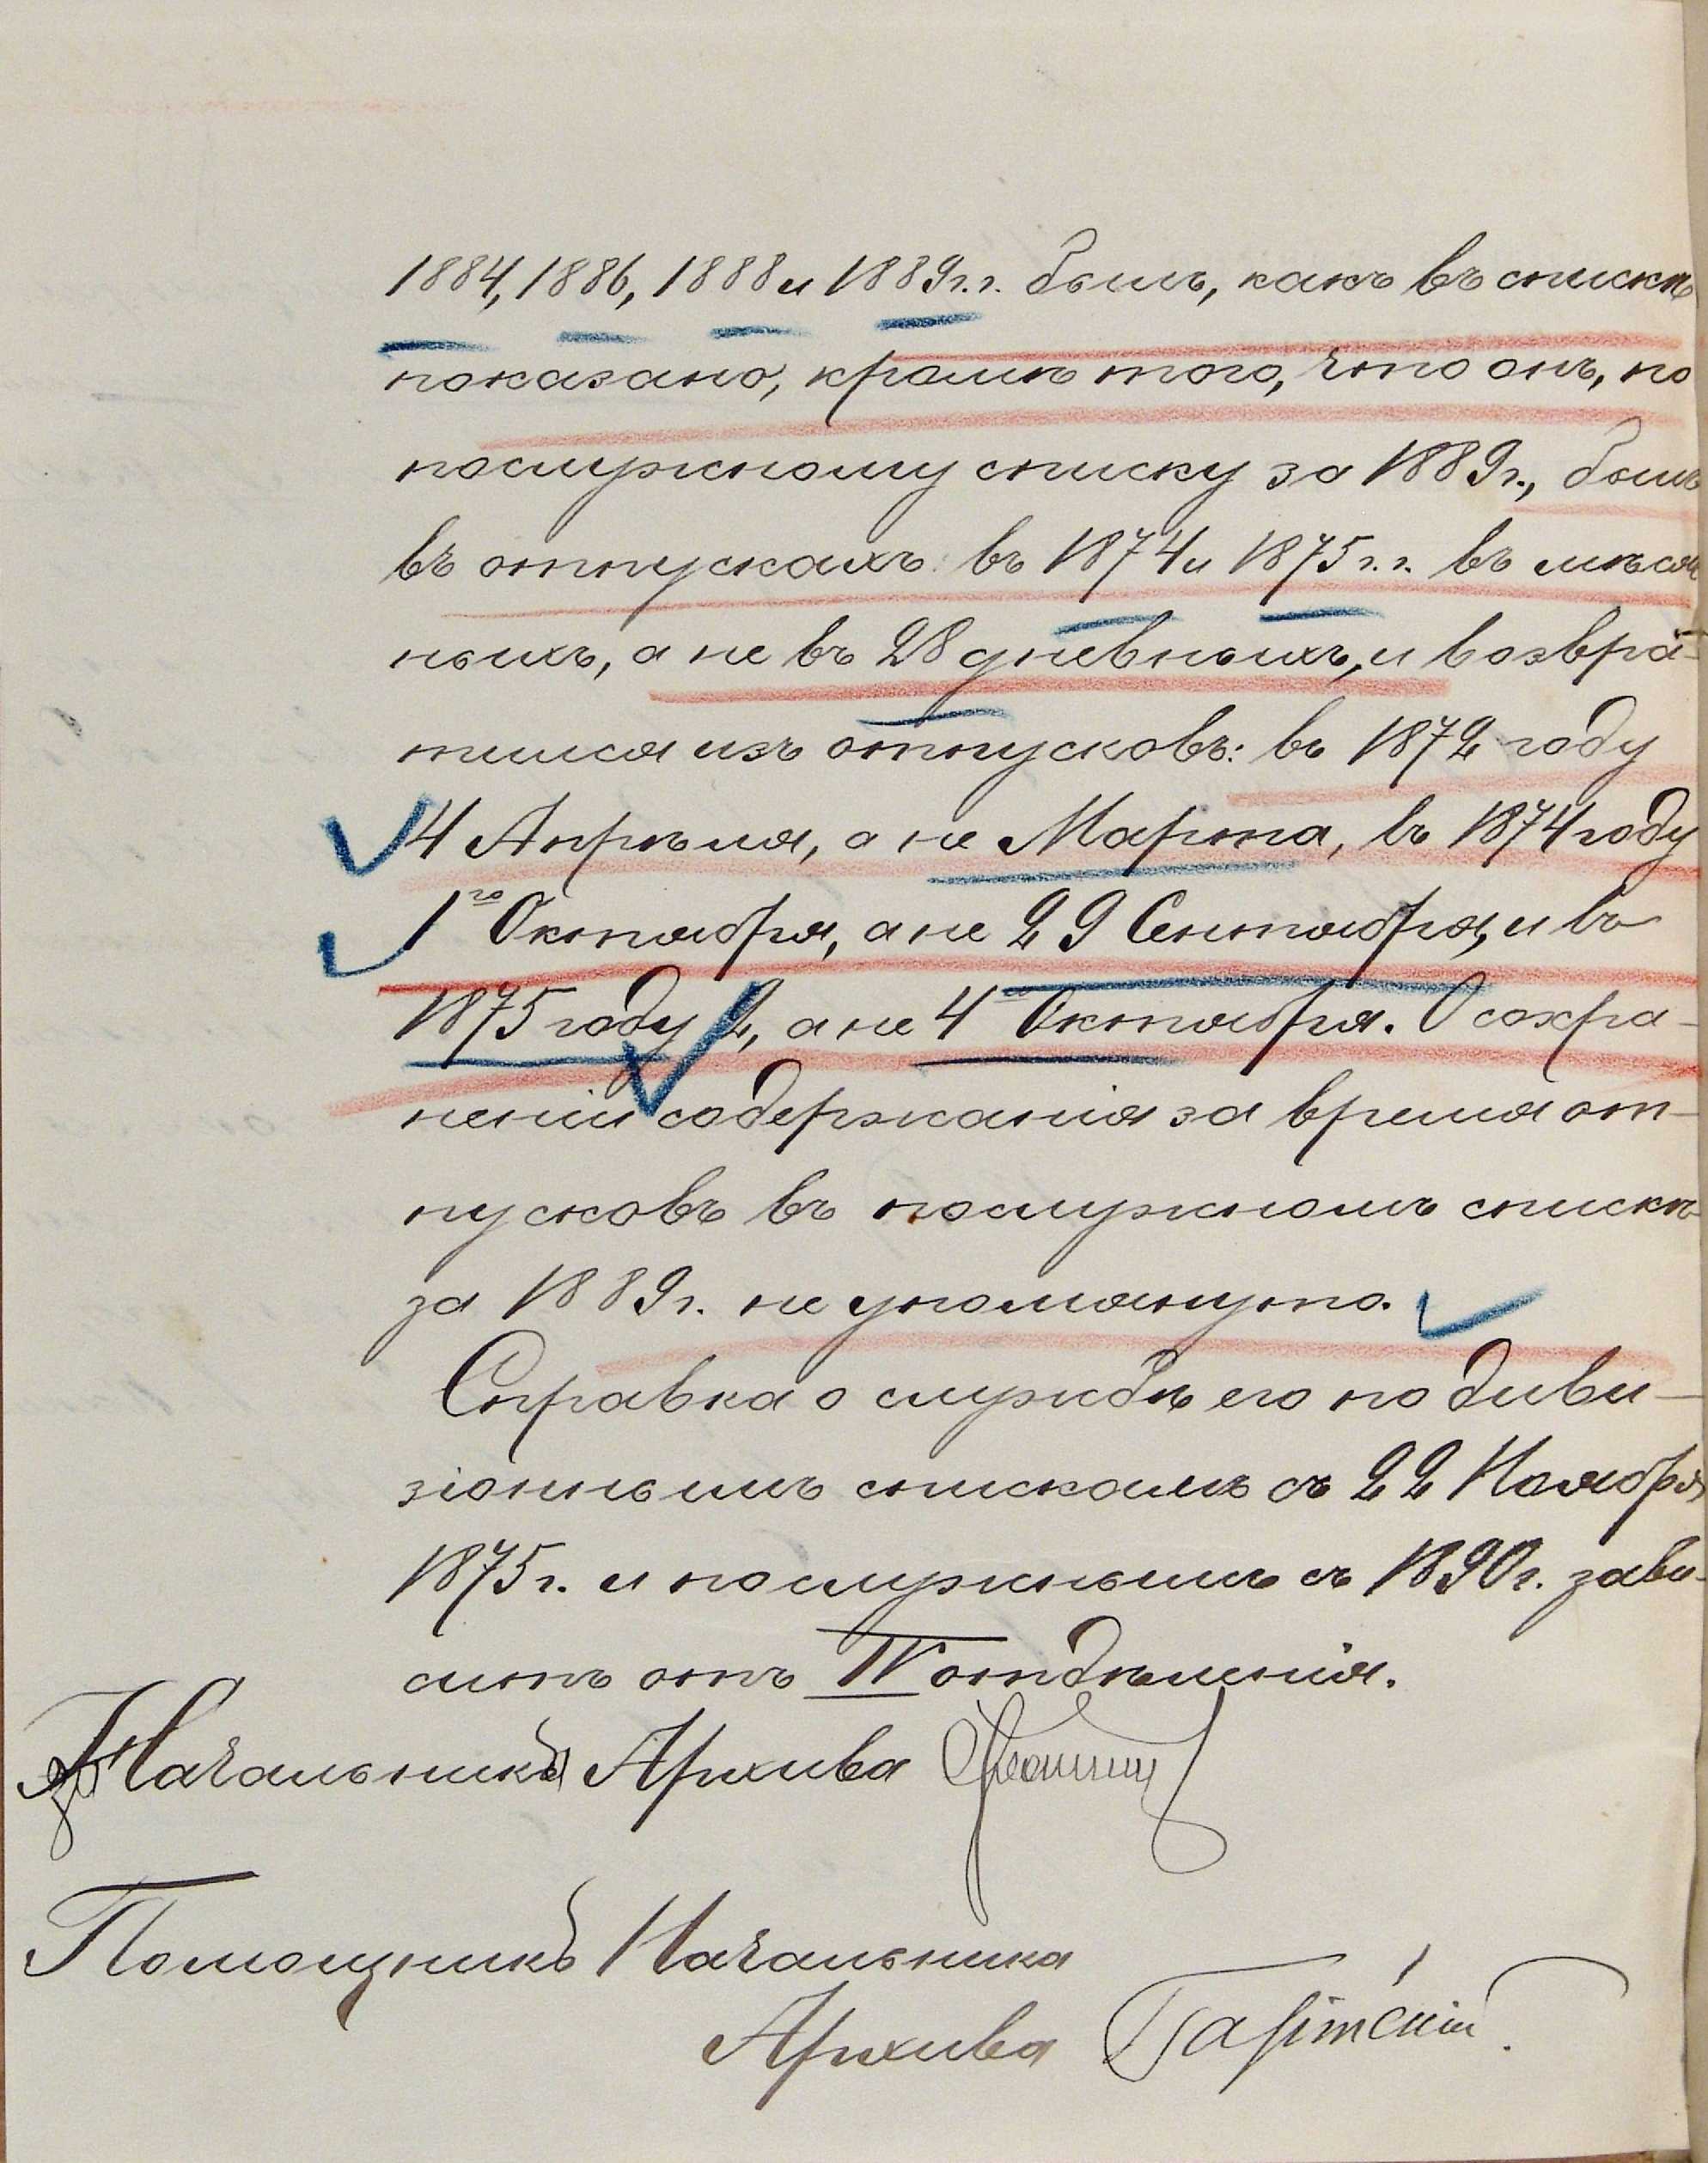 1884, 1886, 1888 и 1889 г.г. былъ, какъ въ спискѣ
показано, кромѣ того, что онъ, по
послужному списку за 1889 г., былъ
въ отпускахъ: въ 1874 и 1875 г.г. въ мѣсяч
ныхъ, а не въ 28 дневныхъ, и возвра-
тился изъ отпусковъ: въ 1872 году
4 Апрѣля, а не Марта, въ 1874 году
1го Октября, а не 29 Сентября, и въ
1875 году 2, а не 4го Октября. О сохра-
неніи содержанія за время от-
пусковъ въ послужномъ спискѣ
за 1889 г. не упомянуто.
Справка о службѣ его по диви-
зіоннымъ спискамъ съ 22 Ноября
1875 г. и послужнымъ съ 1890 г. зави-
ситъ отъ IV отдѣленія.
Начальникъ Архива
Помощникъ Начальника
Архива